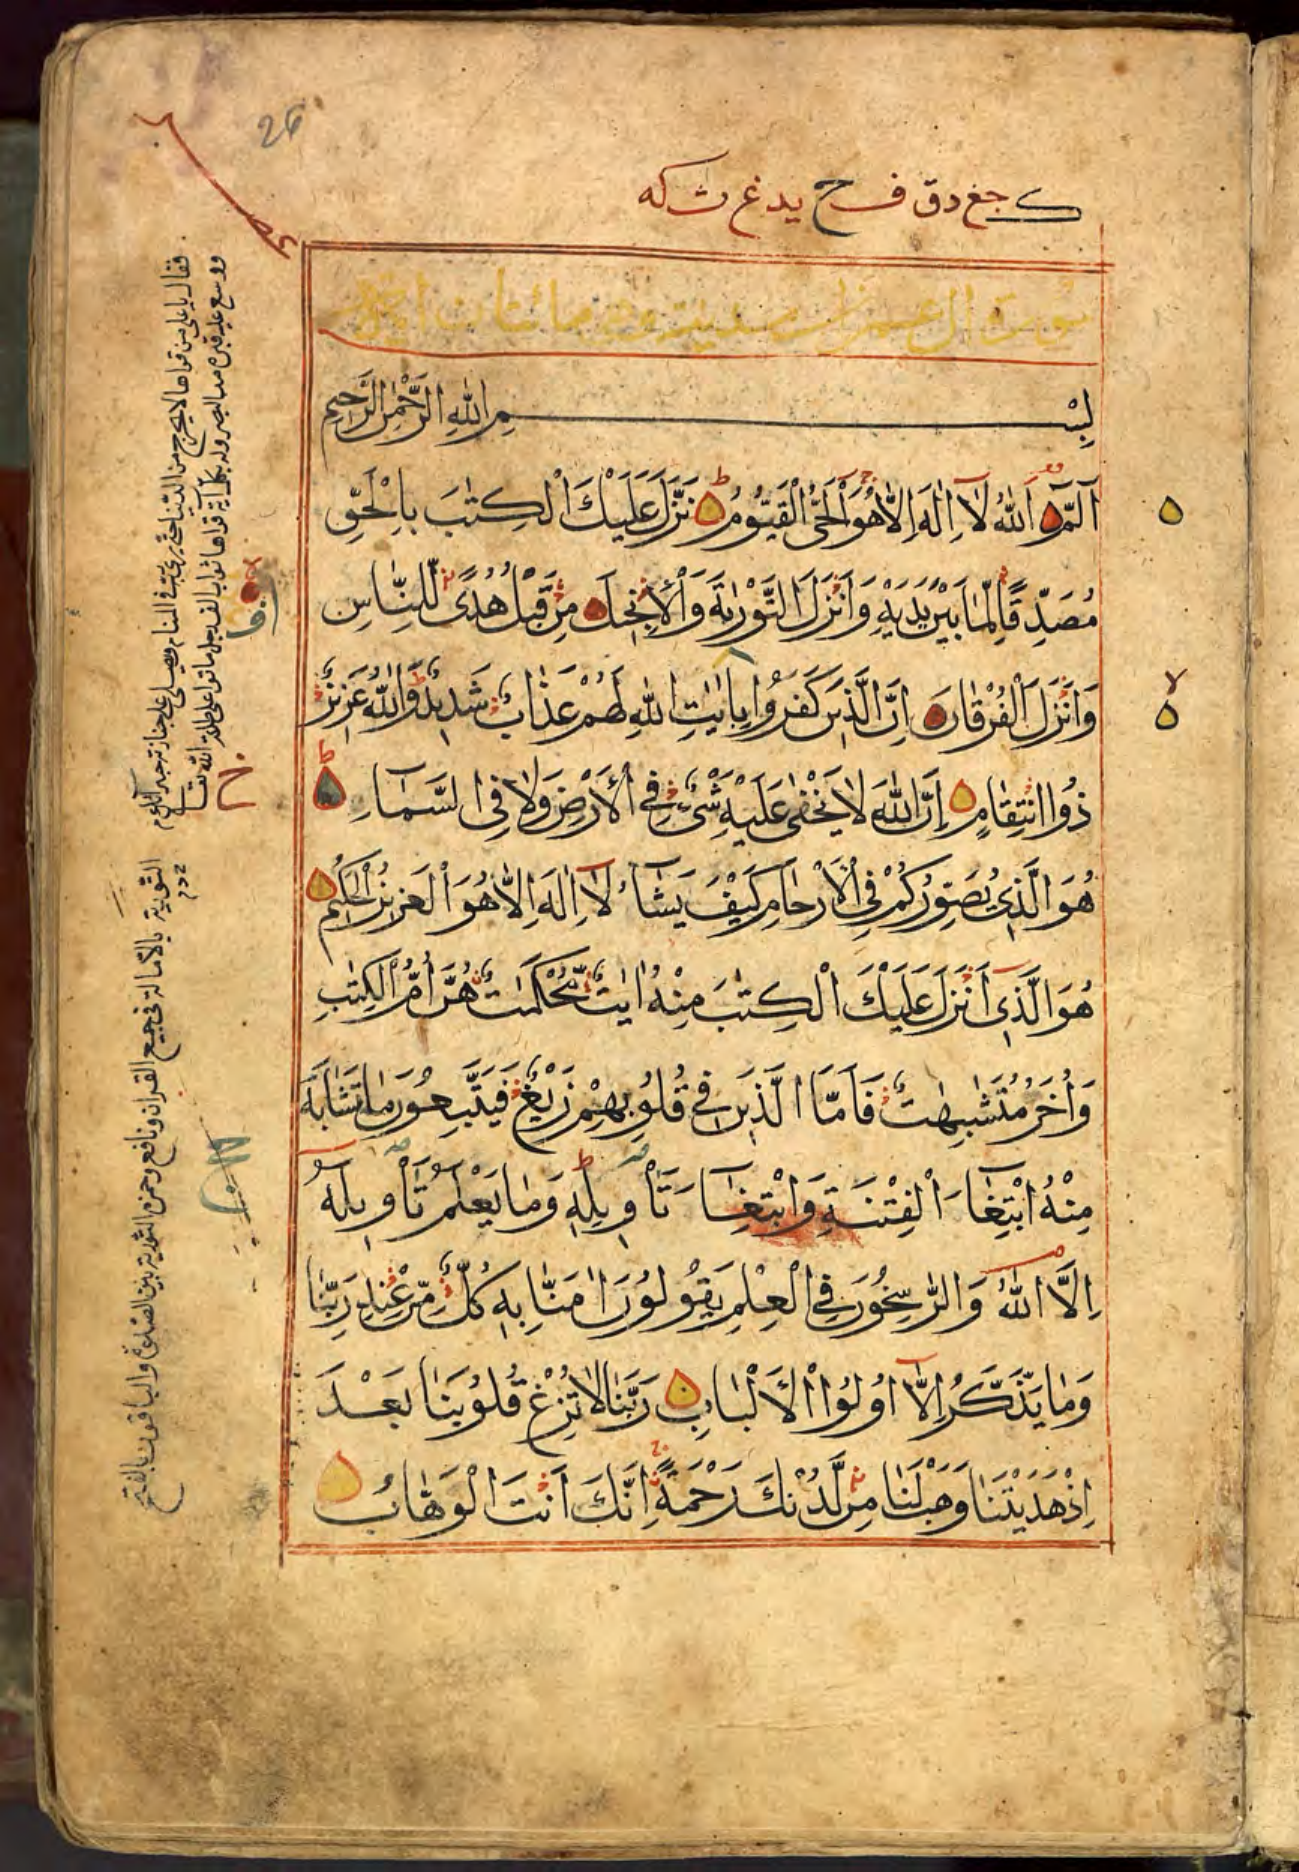 26
سورة ال عمران مدنية وهي مائتا اية
بِسْمِ اللهِ الرَّحْمٰنِ الرَّحِيمِ
آلمّٓ اَللهُ لَآ اِلٰهَ اِلَّا هُوَ الْحَيُّ الْقَيُّومُ نَزَّلَ عَلَيْكَ الْكِتٰبَ بِالْحَقِّ
مُصَدِّقًا لِّمَا بَيْنَ يَدَيْهِ وَاَنْزَلَ التَّوْرٰىةَ وَالْاِنْجِيلَ مِنْ قَبْلُ هُدًى لِّلنَّاسِ
وَاَنْزَلَ الْفُرْقَانَ اِنَّ الَّذِينَ كَفَرُوا بِاٰيٰتِ اللهِ لَهُمْ عَذَابٌ شَدِيدٌ وَاللهُ عَزِيزٌ
ذُو انْتِقَامٍ اِنَّ اللهَ لَا يَخْفٰى عَلَيْهِ شَيْءٌ فِي الْاَرْضِ وَلَا فِي السَّمَآءِ
هُوَ الَّذِي يُصَوِّرُكُمْ فِي الْاَرْحَامِ كَيْفَ يَشَآءُ لَآ اِلٰهَ اِلَّا هُوَ الْعَزِيزُ الْحَكِيمُ
هُوَ الَّذِيٓ اَنْزَلَ عَلَيْكَ الْكِتٰبَ مِنْهُ اٰيٰتٌ مُّحْكَمٰتٌ هُنَّ اُمُّ الْكِتٰبِ
وَاُخَرُ مُتَشٰبِهٰتٌ فَاَمَّا الَّذِينَ فِي قُلُوبِهِمْ زَيْغٌ فَيَتَّبِعُونَ مَا تَشَابَهَ
مِنْهُ ابْتِغَآءَ الْفِتْنَةِ وَابْتِغَآءَ تَاْوِيلِهِ وَمَا يَعْلَمُ تَاْوِيلَهُ
اِلَّا اللهُ وَالرّٰسِخُونَ فِي الْعِلْمِ يَقُولُونَ اٰمَنَّا بِهِ كُلٌّ مِّنْ عِنْدِ رَبِّنَا
وَمَا يَذَّكَّرُ اِلَّآ اُولُوا الْاَلْبَابِ رَبَّنَا لَا تُزِغْ قُلُوبَنَا بَعْدَ
اِذْ هَدَيْتَنَا وَهَبْ لَنَا مِنْ لَّدُنْكَ رَحْمَةً اِنَّكَ اَنْتَ الْوَهَّابُ
التورية بالامالة في جميع القران ونافع وحمزة التورية بين اللفظين والباقون بالفتح